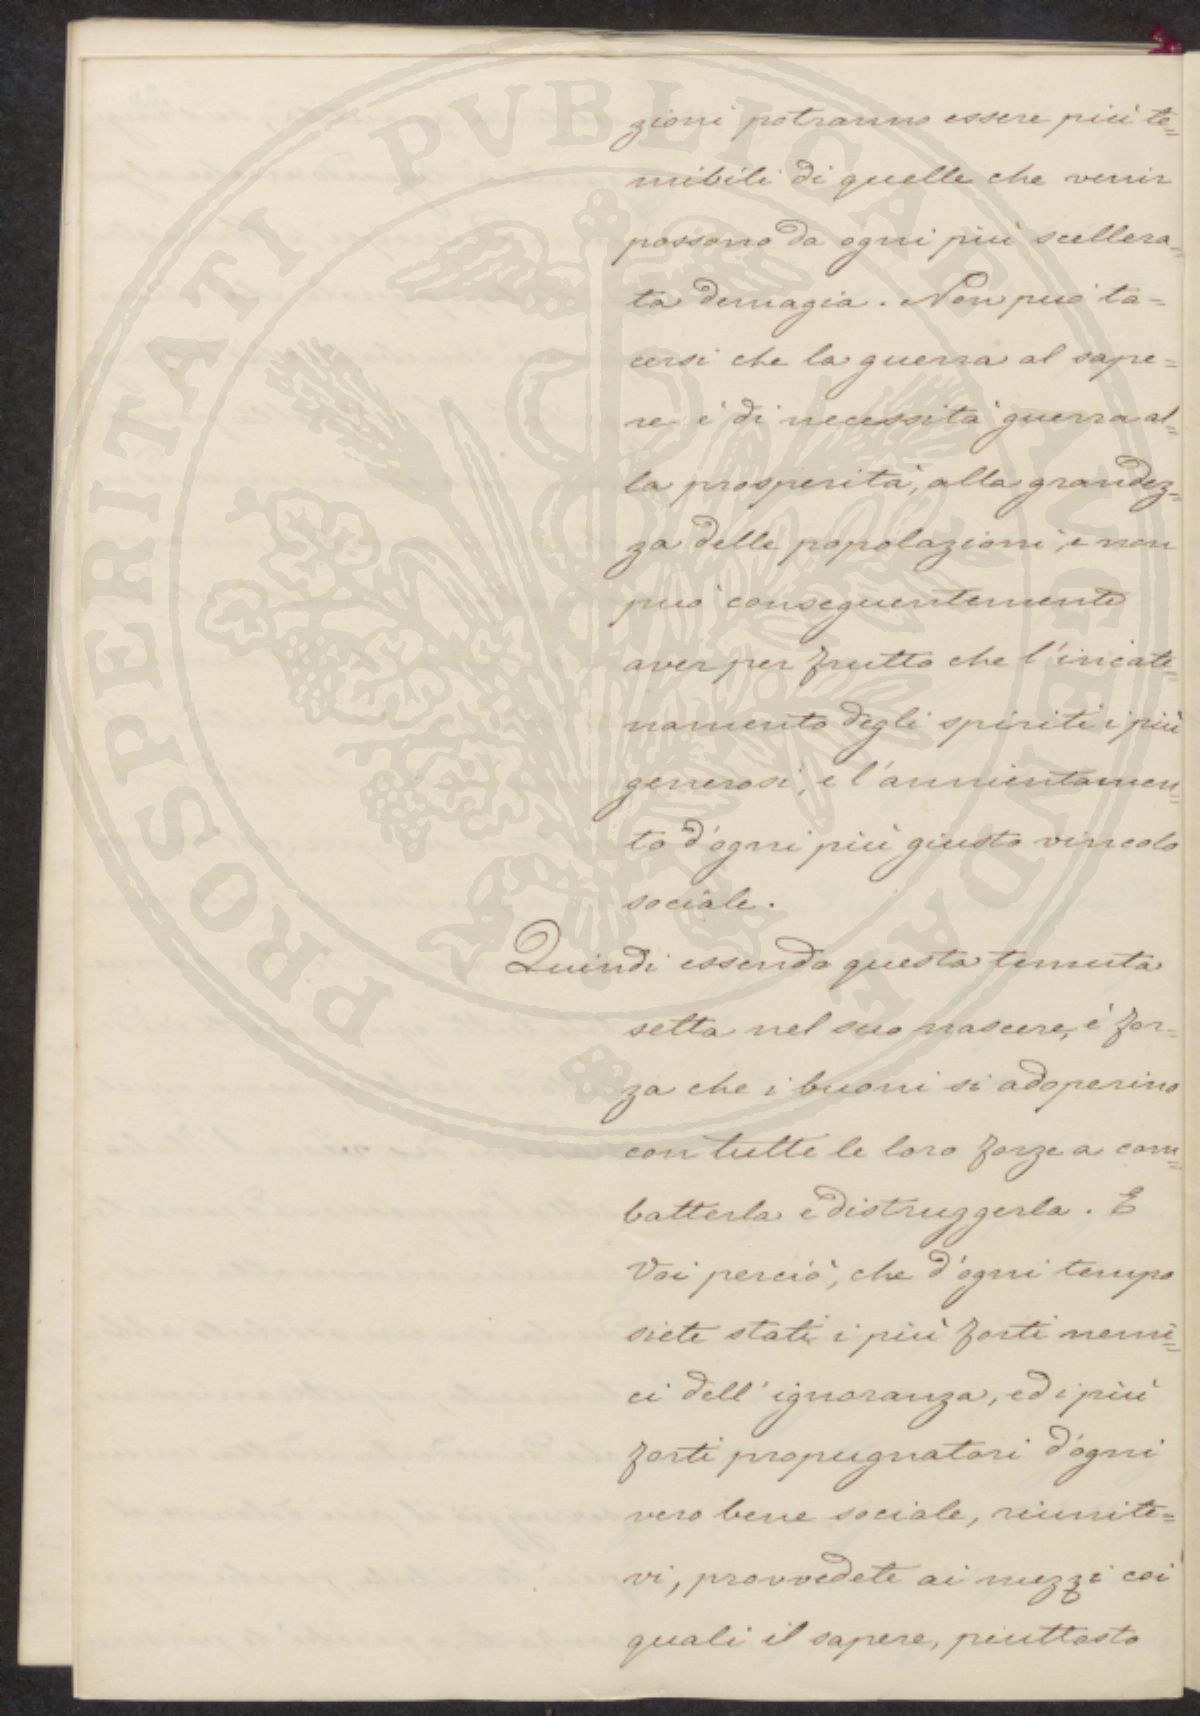 zioni potranno essere più te=
mibili di quelle che venir
possono da ogni più scellera=
ta demagia. Non può ta=
cersi che la guerra al sape=
re è di necessità guerra al=
la prosperità, alla grandez=
za delle popolazioni, e non
può conseguentemente
aver per frutto che l'incate=
namento degli spiriti i più
generosi, e l'annientamen=
to d'ogni più giusto vincolo
sociale.
Quindi essendo questa temuta
setta nel suo nascere, è for=
za che i buoni si adoperino
con tutte le loro forze a com=
batterla e distruggerla. E
Voi perciò, che d'ogni tempo
siete stati i più forti nemi=
ci dell'ignoranza, ed i più
forti propugnatori d'ogni
vero bene sociale, riunite=
vi, provvedete ai mezzi coi
quali il sapere, piuttosto
PROSPERITATI PVBLICAE AVGENDAE